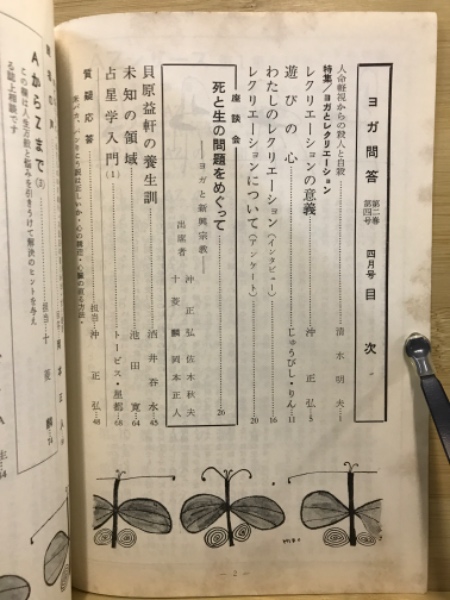 ヨガ問答 第二巻 第四号 四月号 目次
人命軽視からの殺人と自殺 清水明夫 1
特集/ヨガとレクリエーション
レクリエーションの意義 沖正弘 5
遊びの心 じゅうびし・りん 11
わたしのレクリエーション(インタビュー) 16
レクリエーションについて(アンケート) 20
座談会
死と生の問題をめぐって 26
——ヨガと新興宗教——
出席者 沖正弘 佐木秋夫
十菱麟 岡本正人
貝原益軒の養生訓 酒井呑水 45
未知の領域 池田寛 64
占星学入門(1) トービス・星都 68
質疑応答 担当 沖正弘 48
AからZまで(3) 担当 十菱麟 74
この欄は人生万般と悩みを引きうけて解決のヒントを与え
る誌上相談です
— 2 —